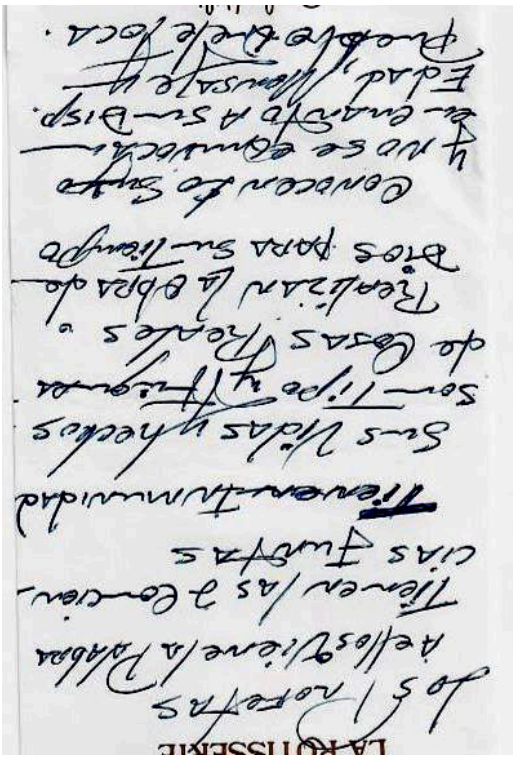 LA ROTISSERIE
Los Profetas
A ellos Viene la Palabra
Tienen las 2 Concien-
cias Juntas
Tienen Inmunidad
Sus Vidas y hechos
son Tipo y Figura
de Cosas Reales.
Realizan la Obra de
DIOS PARA Su Tiempo
Conocen lo Suyo
y NO se equivocan
en cuanto A Su DISP.
Edad, Mensaje y
Pueblo que le Toca.